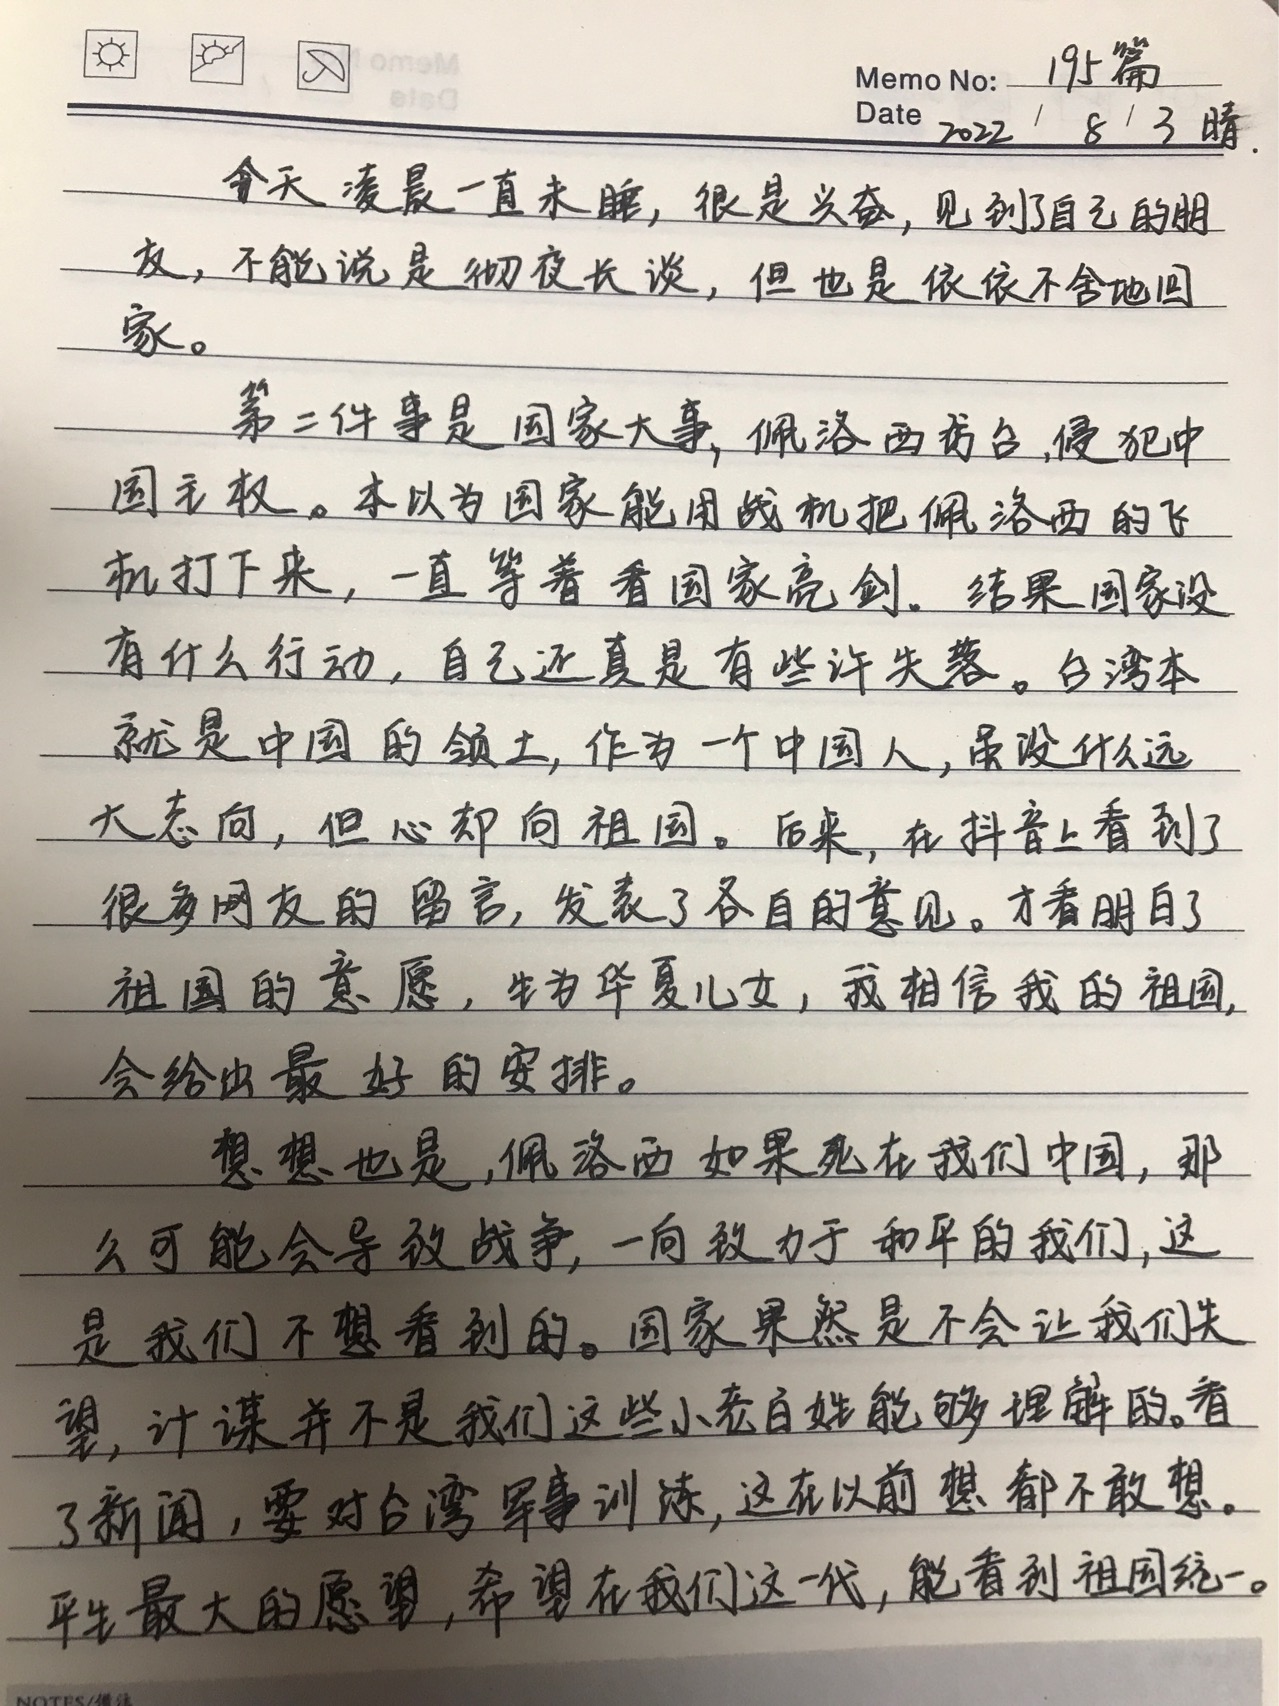 Memo No: 195篇
Date 2022 / 8 / 3 晴.
今天凌晨一直未睡，很是兴奋，见到了自己的朋
友，不能说是彻夜长谈，但也是依依不舍地回
家。
第二件事是国家大事，佩洛西访台，侵犯中
国主权。本以为国家能用战机把佩洛西的飞
机打下来，一直等着看国家亮剑。结果国家没
有什么行动，自己还真是有些许失落。台湾本
就是中国的领土，作为一个中国人，虽没什么远
大志向，但心却向祖国。后来，在抖音上看到了
很多网友的留言，发表了各自的意见。才看明白了
祖国的意愿，生为华夏儿女，我相信我的祖国，
会给出最好的安排。
想想也是，佩洛西如果死在我们中国，那
么可能会导致战争，一向致力于和平的我们，这
是我们不想看到的。国家果然是不会让我们失
望，计谋并不是我们这些小老百姓能够理解的。看
了新闻，要对台湾军事训练，这在以前想都不敢想。
平生最大的愿望，希望在我们这一代，能看到祖国统一。
NOTES/备注